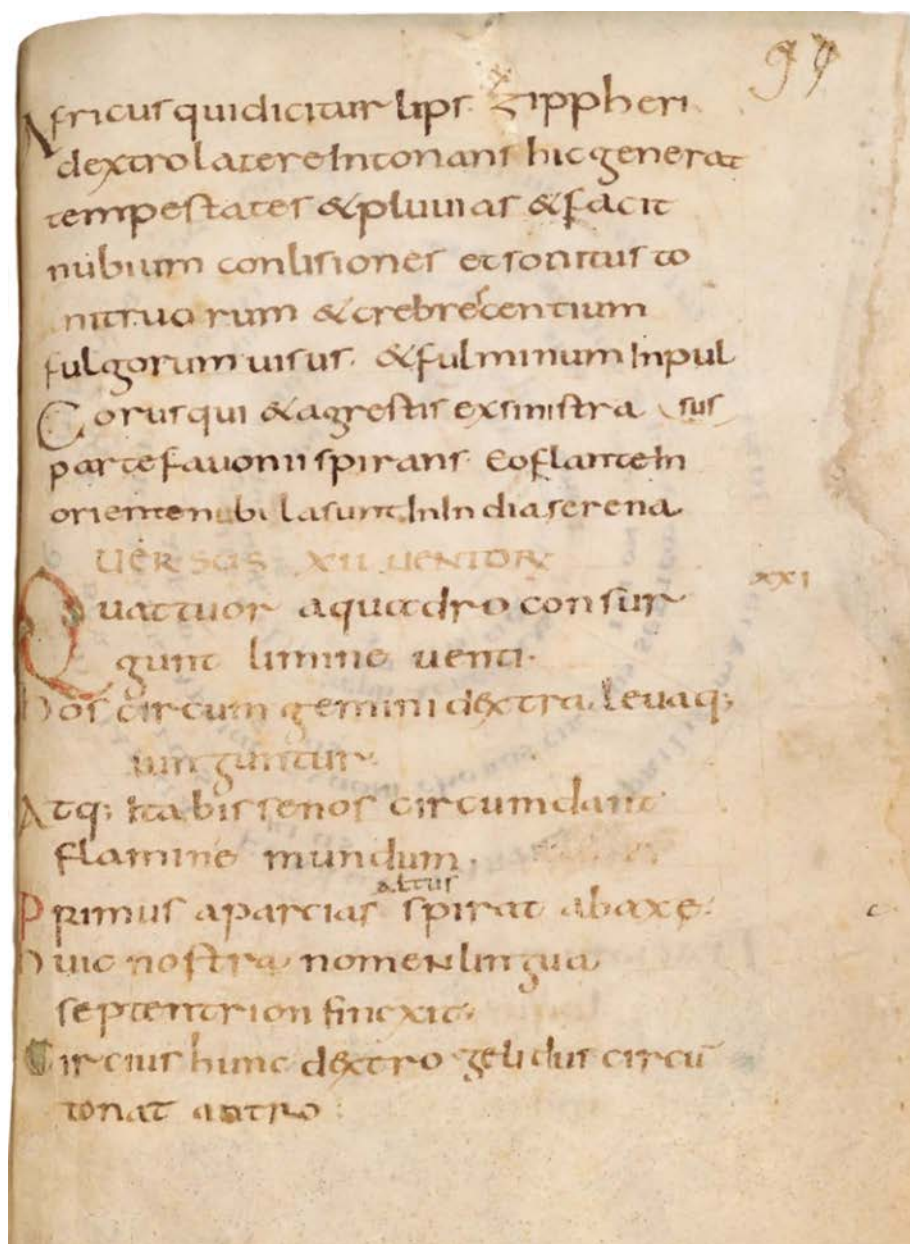 97
Africus qui dicitur lips. Zippheri
dextro latere Intonans hic generat
tempestates & pluuias & facit
nubium conlisiones et sonitus to
nitruo rum & crebrescentium
fulgorum uisus. & fulminum Inpul
Corus qui & agrestis ex sinistra sus
parte favonii spirans. Eo flante In
oriente nubila sunt. In India serena
UERSUS XII UENTOR
xxi
Quattuor a quadro consur
gunt limine uenti.
hos circum gemini dextra levaq;
iunguntur.
Atq; Ita bis senos circumdant
flamine mundum.
altus
Primus aparcias spirat ab axe.
huic nostra nomen lingua
septentrion fincxit.
Circius hunc dextro gelidus circū
tonat antro